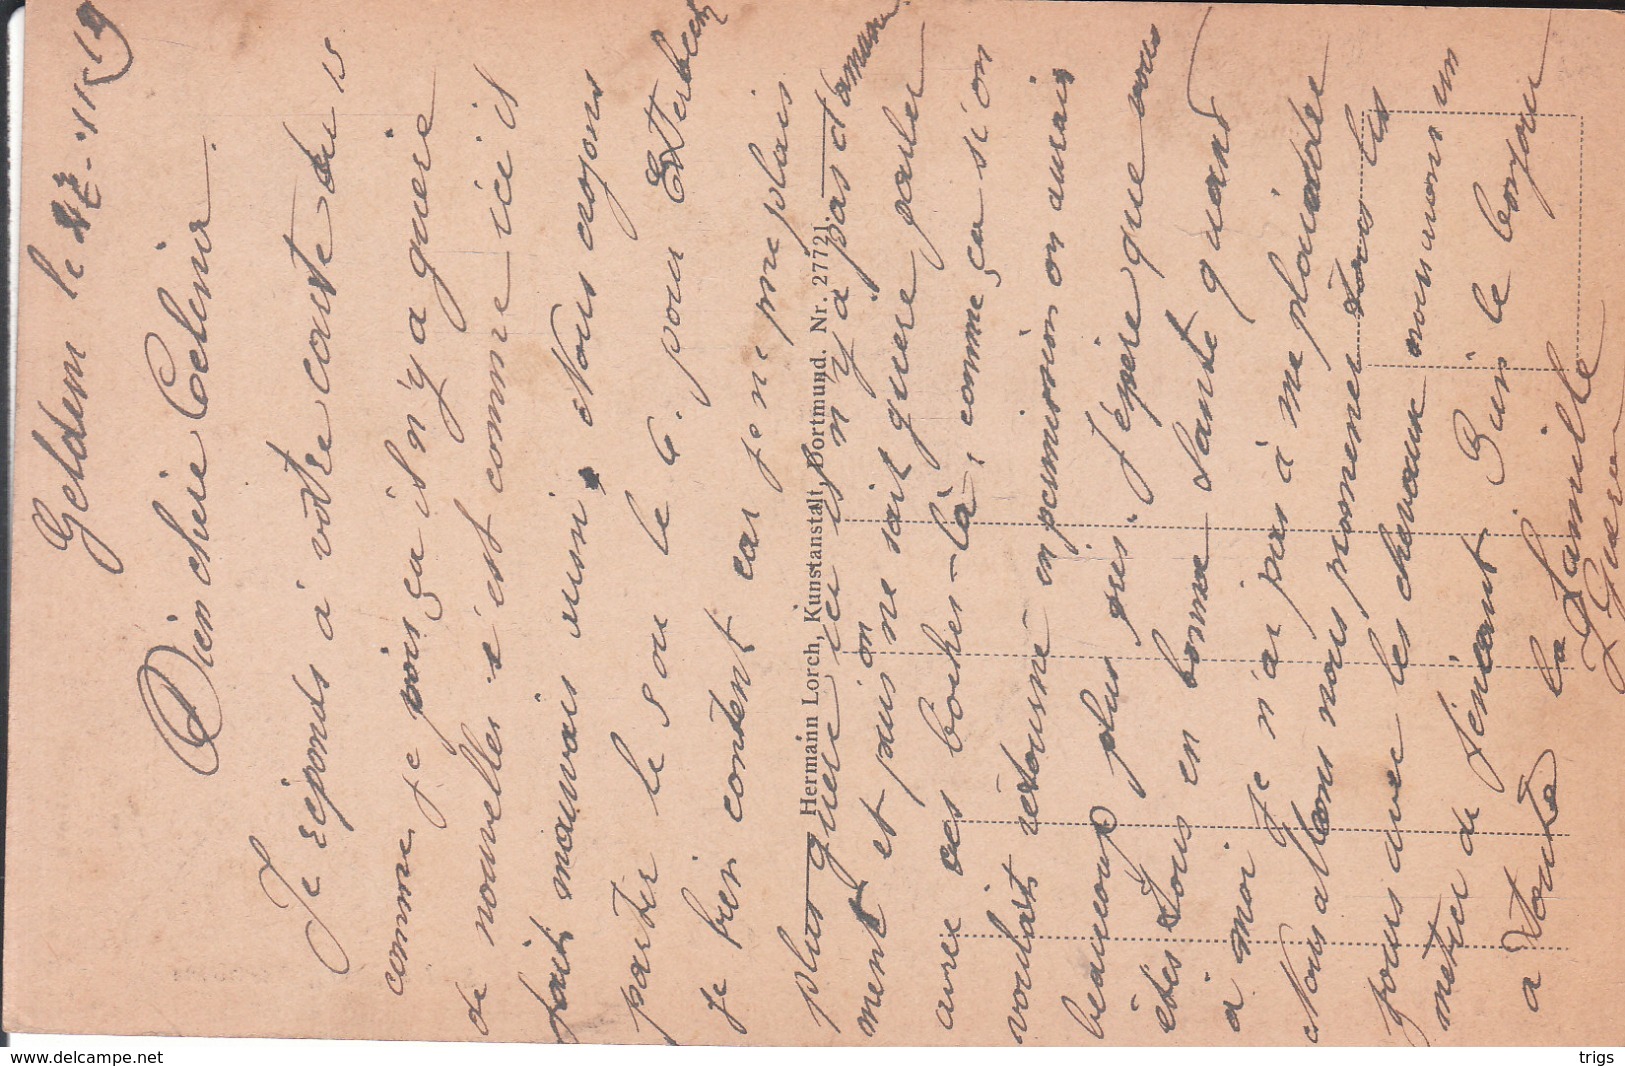 Geldern le 22-11-19
Bien chère Celinie.
Je réponds à votre carte du 15
comme je vois ça il n'y a guère
de nouvelles s'est comme ici il
fait mauvais aussi, Nous croyons
partir le 5 ou le 6. pour Etterbeek
je bien content car je ne me plais
plus guère ici il n'y a pas d'amuse
ment et puis on ne sait guere parler
avec ces boches-là, comme ça si on
voulait retourne en permission on aurais
beaucoup plus Jéspère que vous
êtes tous en bonne sante quand
a moi je n'ai pas à me plaindre
Nous allons nous promener tous les
jours avec les chevaux nous avons un
metier de fénéant Bien le bonjour
a toute la famille
Hermann Lorch, Kunstanstalt, Dortmund. Nr. 27721.
www.delcampe.net
trigs